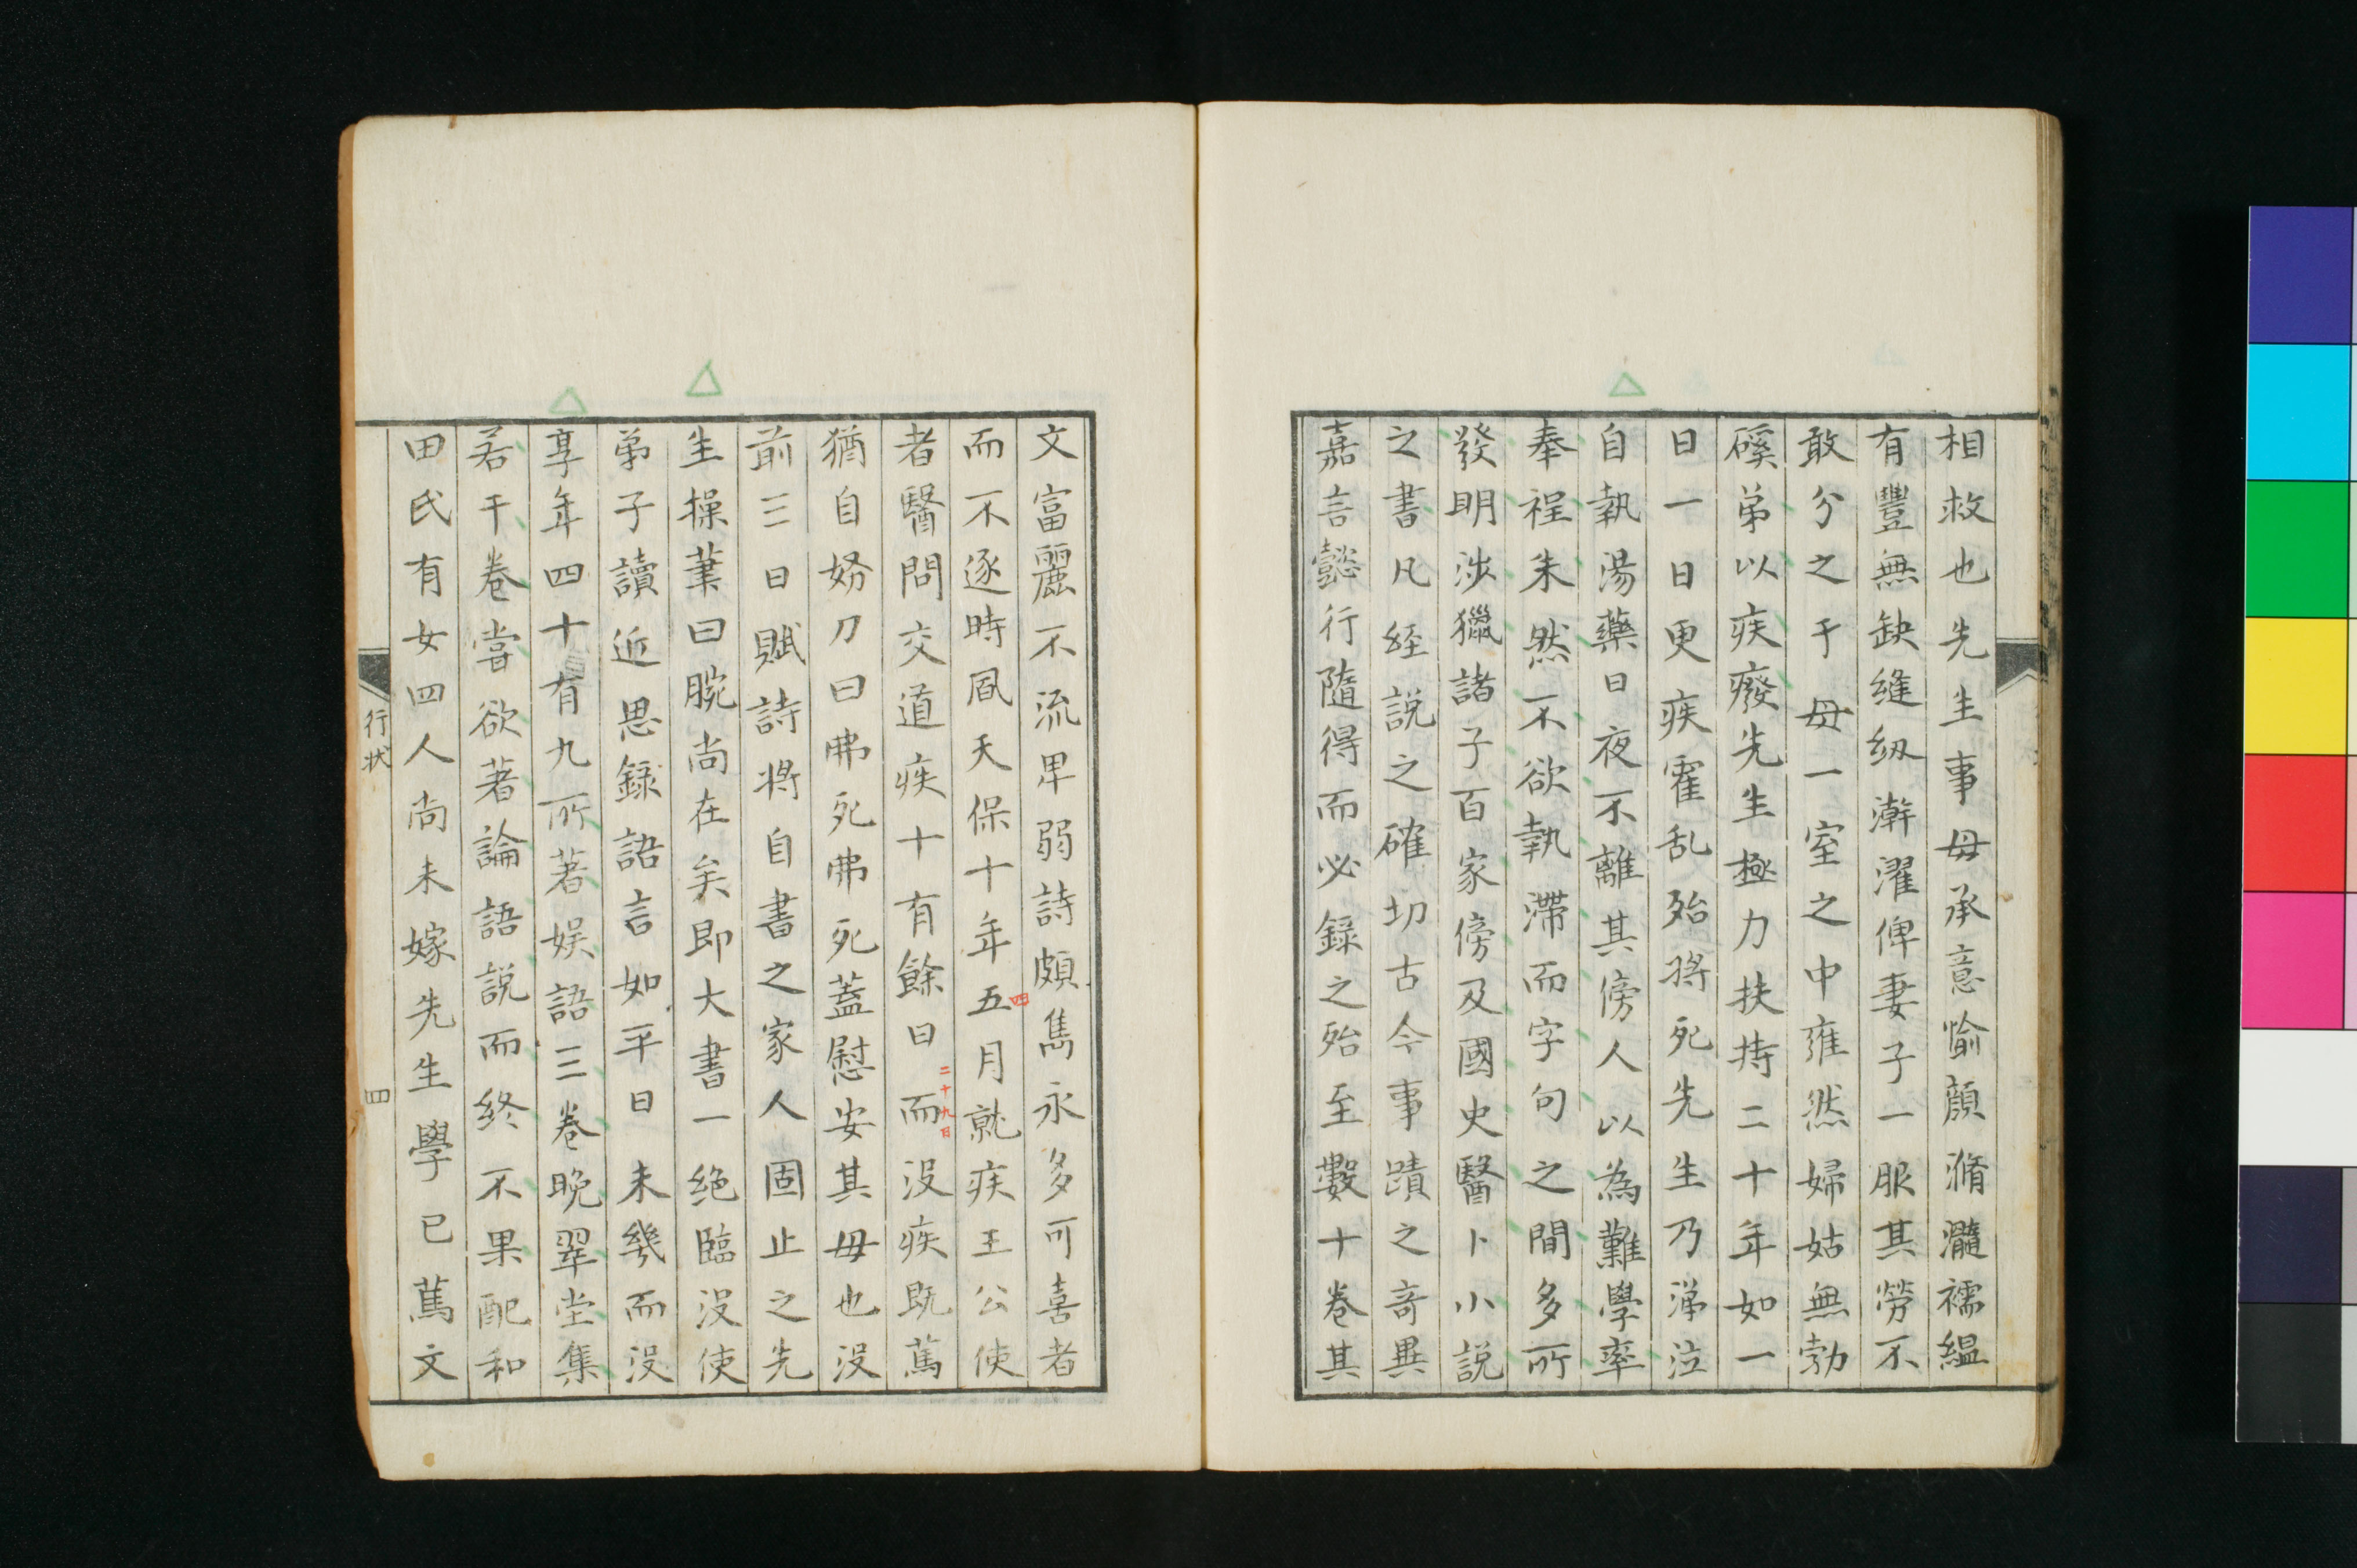 相救也先生事毋承意愉顔滫瀡襦縕
有豐無缺縫紉澣濯俾妻子一服其勞不
敢分之于毋一室之中雍然婦姑無勃
磎弟以疾癈先生極力扶持二十年如一
日一日更疾霍乱殆将死先生乃涕泣
自執湯藥日夜不離其傍人以為難學率
奉程朱然不欲執滯而字句之間多所
發明渉獵諸子百家傍及國史醫卜小説
之書凡経説之確切古今事蹟之竒異
嘉言懿行隨得而必録之殆至數十巻其
文富麗不流卑弱詩頗雋永多可喜者
而不逐時風天保十年五月就疾王公使
四
者醫問交道疾十有餘日而没疾既篤
二十九日
猶自努力曰弗死弗死蓋慰安其毋也没
前三日賦詩将自書之家人固止之先
生操筆曰腕尚在矣即大書一絶臨没使
弟子讀近思録語言如平日未幾而没
享年四十有九所著娯語三巻晩翠堂集
若干巻嘗欲著論語説而終不果配和
田氏有女四人尚未嫁先生學已篤文
行状
四